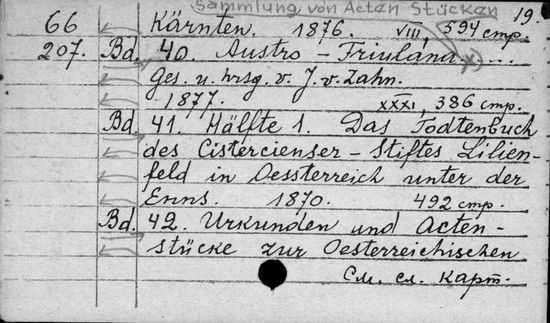 Sammlung von Acten Stücken
19.
66 Kärnten. 1876. VIII, 594 стр.
207. Bd. 40. Austro - Friulana. x) ...
Ges. u. hrsg. v. J. v. Zahn.
1877. XXXI, 386 стр.
Bd. 41. Hälfte 1. Das Todtenbuch
des Cistercienser - Stiftes Lilien-
feld in Oessterreich unter der
Enns. 1870. 492 стр.
Bd. 42. Urkunden und Acten-
stücke zur Oesterreichischen
См. сл. карт.